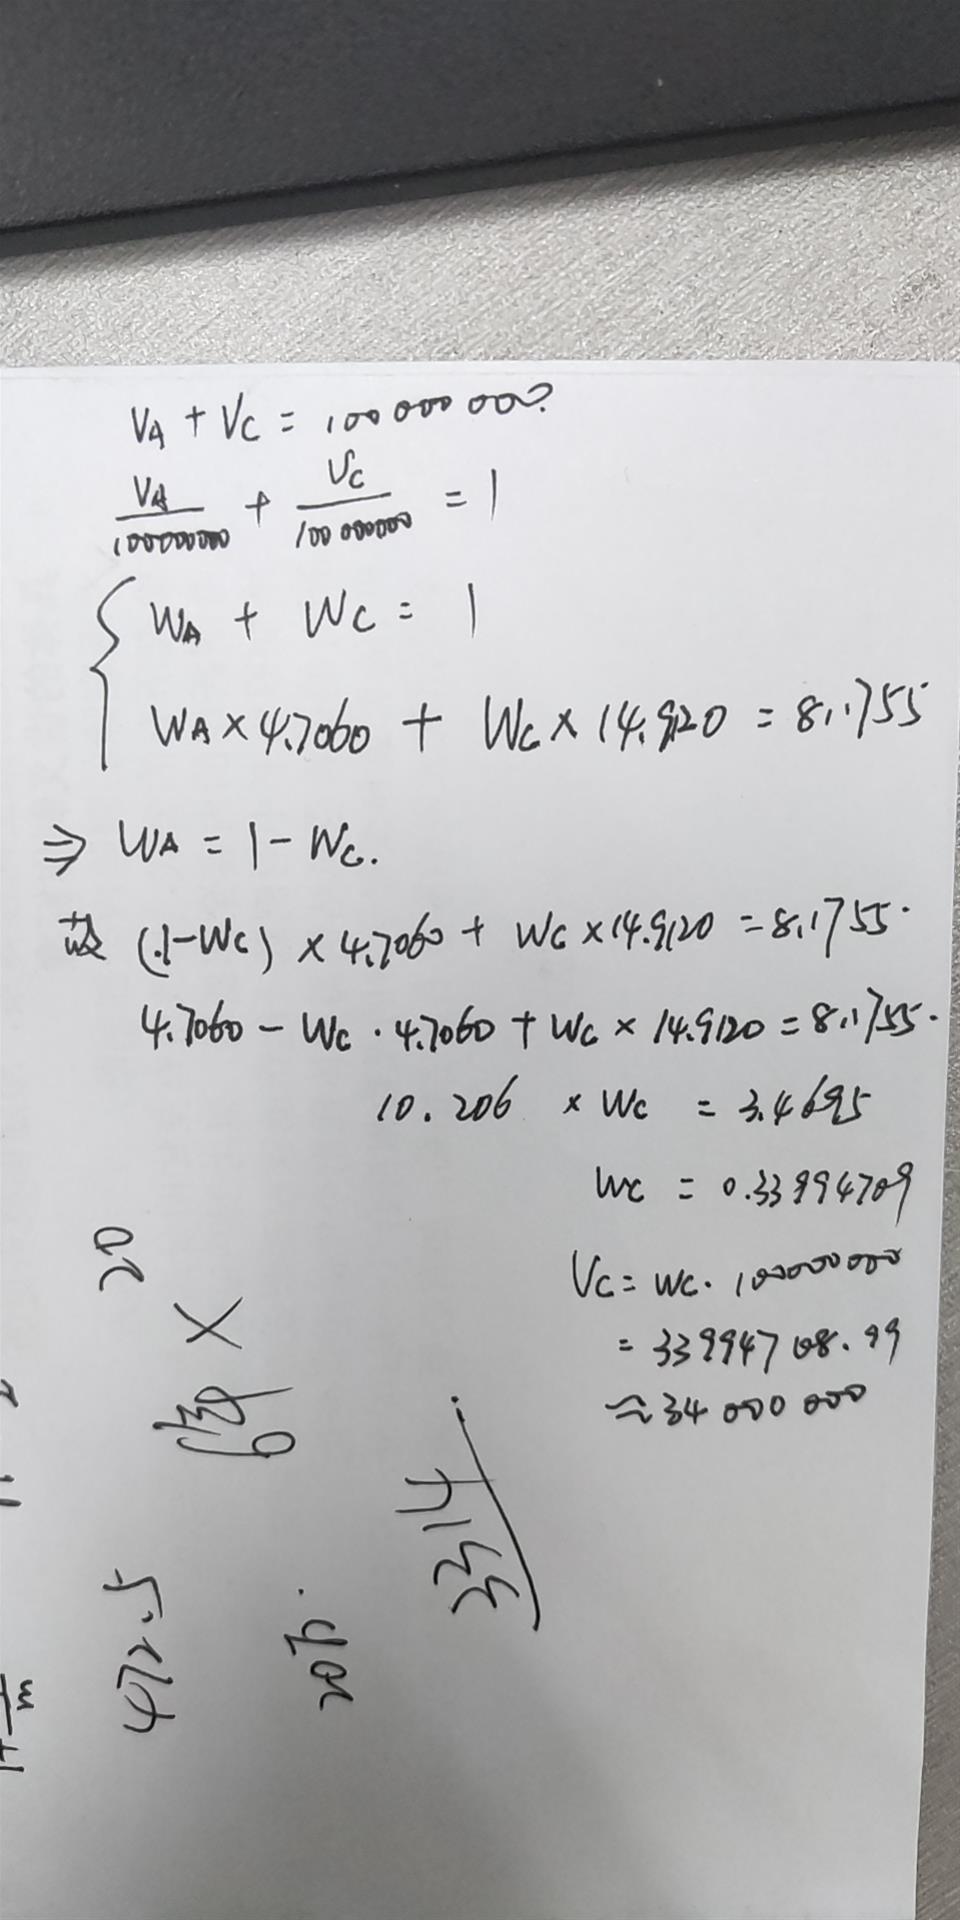 VA + VC = 100 000 000.
VA/100000000 + VC/100 000000 = 1
WA + WC = 1
WA × 4.7060 + WC × 14.9120 = 8.1755
⇒ WA = 1 - WC.
故 (1-WC) × 4.7060 + WC × 14.9120 = 8.1755.
4.7060 - WC · 4.7060 + WC × 14.9120 = 8.1755.
10.206 × WC = 3.4695
WC = 0.33994709
VC = WC. 100000000
= 339947 08.99
≈ 34 000 000
20
×
472.5